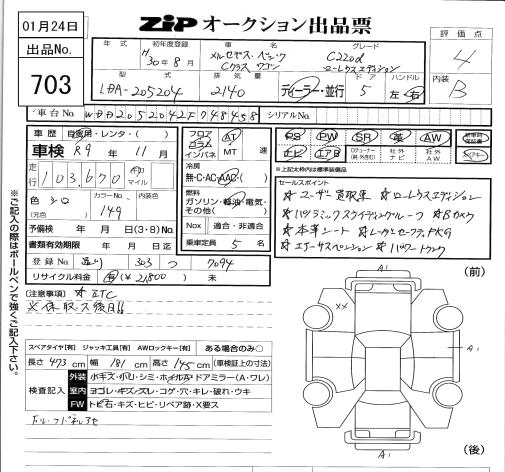 01月24日
ZIP オークション出品票
出品No.
703
評価点
4
内装
B
年式
初年度登録
H30年8月
車名
メルセデス・ベンツ
Cクラスワゴン
グレード
C220d
ローレウスエディション
型式
LDA-205204
排気量
2140
ディーラー・並行
ドア
5
ハンドル
左・右
車台No.
WDD2052042F748458
シリアルNo.
車歴 自家用・レンタ・( )
車検 R9年11月
走行 103,670 km マイル
色 シロ
(元色)
カラーNo.
149
内装色
予備検 年 月 日(3・8)No.
書類有効期限 年 月 日迄
登録No. 303 つ 7094
リサイクル料金 有(¥21,800) 未
フロア
コラム
インパネ
AT
MT 速
冷房
無・C・AC・AAC・( )
燃料
ガソリン・軽油・電気・
その他( )
Nox 適合・非適合
乗車定員 5 名
PS PW SR 革 AW
ナビ エアB 社外ナビ 社外AW
※上記太枠内は標準装備品
セールスポイント
☆ユーザー買取車 ☆ローレウスエディション
☆パノラミックスライディングルーフ ☆Bカメラ
☆本革シート ☆レーダーセーフティPKG
☆エアーサスペンション ☆パワートランク
注意事項 ☆ETC
※ご記入の際はボールペンで強くご記入下さい。
スペアタイヤ[有] ジャッキ工具[有] AWロックキー[有] ある場合のみ〇
長さ 473 cm 幅 181 cm 高さ 145 cm (車検証上の寸法)
検査記入
外装 小キズ・凹リ・シミ・ホイルA・ドアミラー(A・ワレ)
室内 ヨゴレ・キズ・スレ・コゲ・穴・キレ・破れ・ウキ
FW トビ石・キズ・ヒビ・リペア跡・X要ス
(前)
A1
XX
A1
A1
(後)